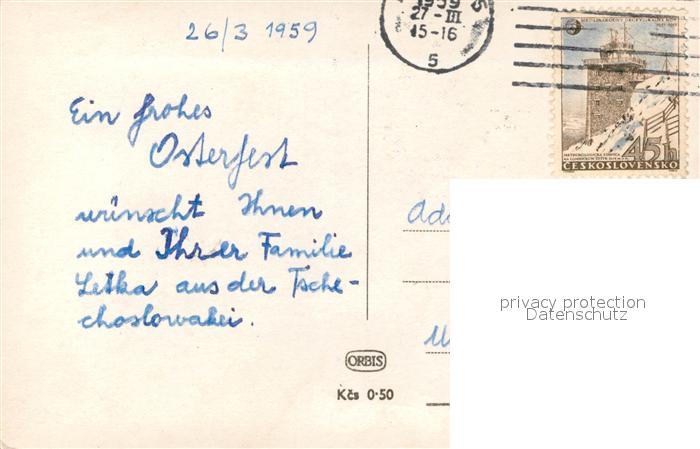 26/3 1959
Ein frohes
Osterfest
wünscht Ihnen
und Ihrer Familie
Letka aus der Tsche-
choslowakei.
1959
27 -III
15-16
5
45h
ČESKOSLOVENSKO
privacy protection
Datenschutz
ORBIS
Kčs 0·50